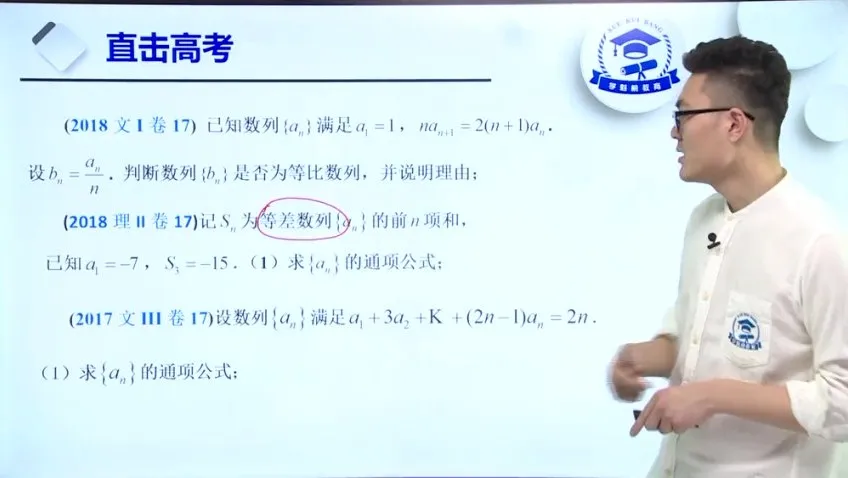 直击高考
XUE HUI BANG
学慧帮教育
(2018 文 I 卷 17) 已知数列{aₙ}满足a₁=1，naₙ₊₁=2(n+1)aₙ．
设bₙ=aₙ/n．判断数列{bₙ}是否为等比数列，并说明理由；
(2018 理 II 卷 17)记Sₙ为等差数列{aₙ}的前n项和，
已知a₁=−7，S₃=−15．（1）求{aₙ}的通项公式；
(2017 文 III 卷 17)设数列{aₙ}满足a₁+3a₂+K+(2n−1)aₙ=2n．
（1）求{aₙ}的通项公式；